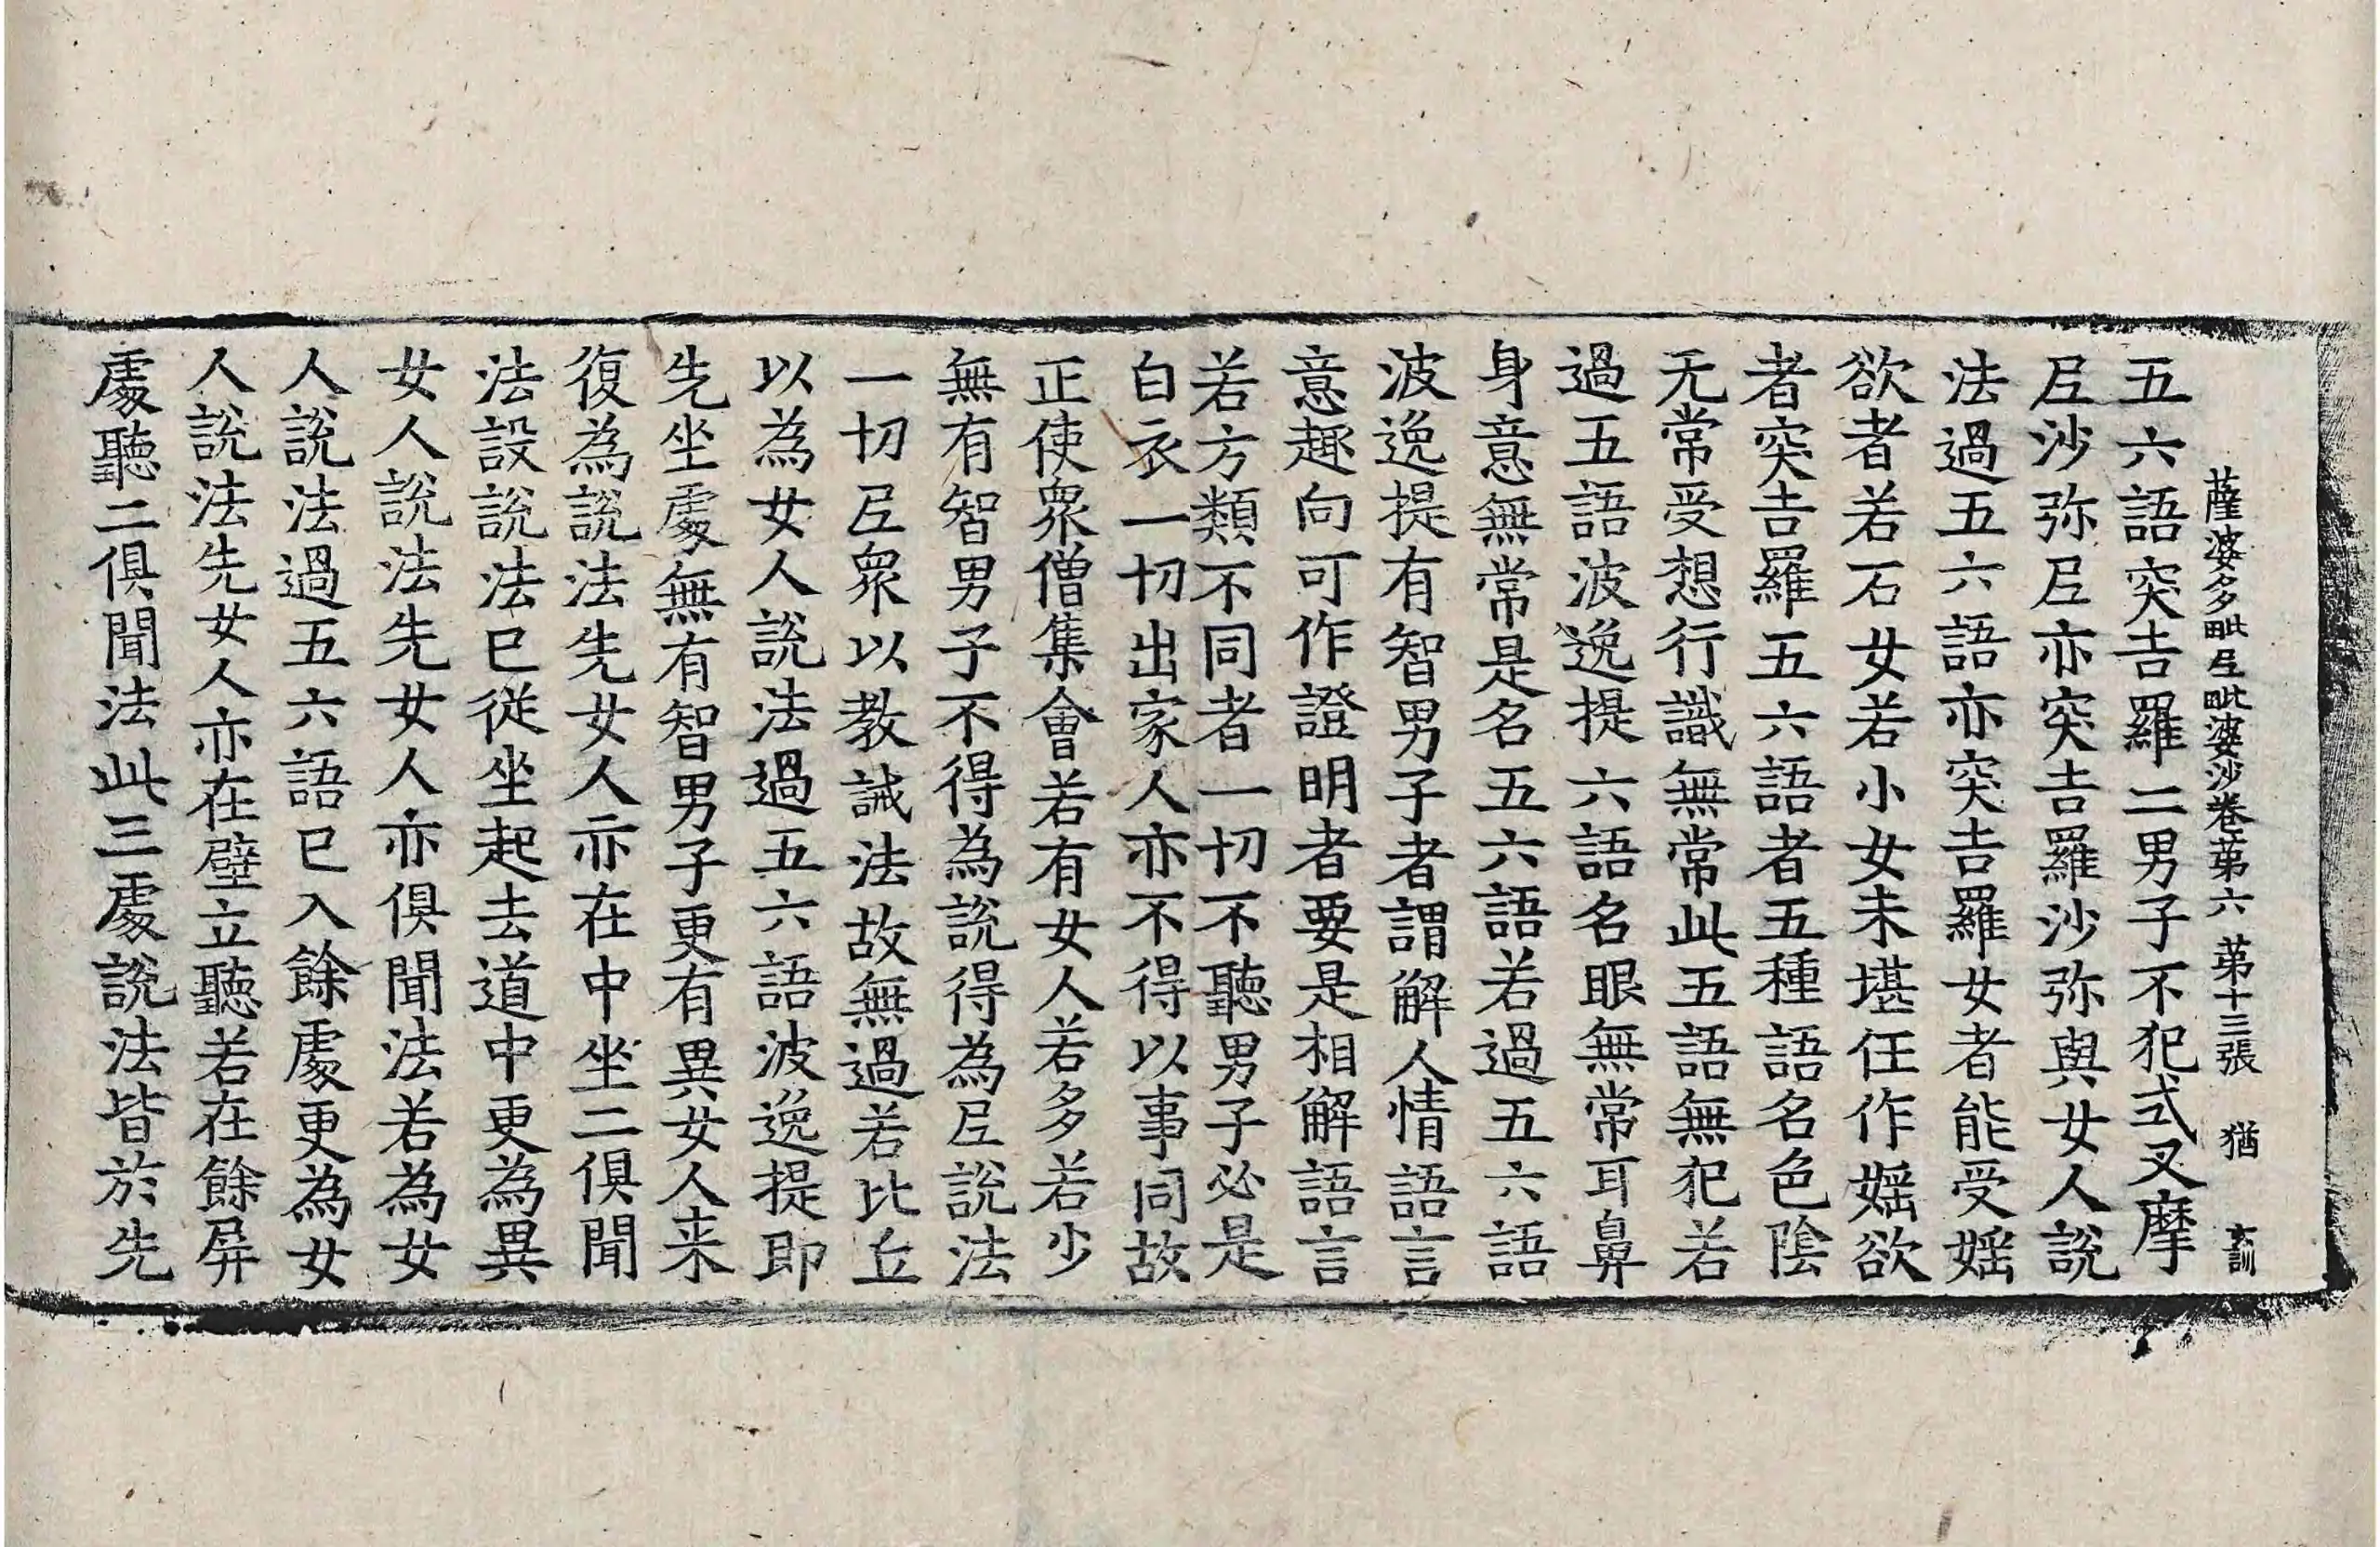 薩婆多毗𡰱毗婆沙卷第六 第十三張 猶 玄訓
五六語突吉羅二男子不犯式叉摩
𡰱沙弥𡰱亦突吉羅沙弥與女人說
法過五六語亦突吉羅女者能受婬
欲者若石女若小女未堪任作婬欲
者突吉羅五六語者五種語名色陰
无常受想行識無常此五語無犯若
過五語波逸提六語名眼無常耳鼻
身意無常是名五六語若過五六語
波逸提有智男子者謂解人情語言
意趣向可作證明者要是相解語言
若方類不同者一切不聽男子必是
白衣一切出家人亦不得以事同故
正使衆僧集會若有女人若多若少
無有智男子不得為說得為𡰱說法
一切𡰱衆以教誡法故無過若比丘
以為女人說法過五六語波逸提即
先坐處無有智男子更有異女人来
復為說法先女人亦在中坐二俱聞
法設說法已從坐起去道中更為異
女人說法先女人亦俱聞法若為女
人說法過五六語已入餘處更為女
人說法先女人亦在壁立聽若在餘屏
處聽二俱聞法此三處說法皆於先